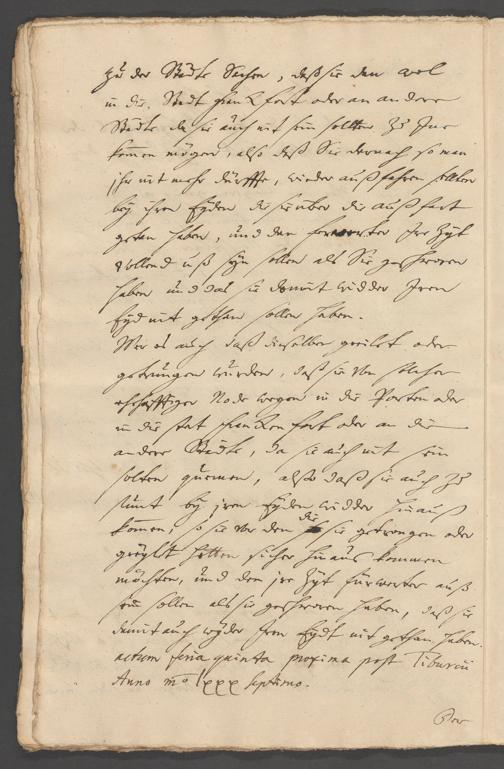 zu der Städte Sachen, daß sie dan wol
in die Stadt franckfort oder an andere
Städte da sie auch nit sein sollten Zu Jne
komen mögen, also daß Sie darnach so man
jhr nit mehr dürffte, wieder außfahren sollten
bÿ ihren Eyden die sie über die außfart
gethan haben, und dan forwerter Ire Zÿt
vollend uß sÿn sollen als Sie geschworen
haben und das sie domit widder Jren
Eyd nit gethan sollen haben.
Wer es auch daß dieselben geeilet oder
getrungen würden, daß sie von solcher
ehehafftiger Node wegen in die Porten oder
in die stat franckenfort oder an die
andere Städte, da sie auch nit sein
solten quemen, also daß sie auch Zu
stunt bÿ jren Eyden widder hinauß
komen, so sie vor den die sie getrongen oder
geeylet hetten sicher hinaus kommen
möchten, und dem jre Zÿt fürwerter auß
sein sollen als sie geschworen haben, daß sie
damit auch wyder Jren Eydt nit gethan haben.
actum feria quinta proxima post Tiburcii
Anno mo lxxx septimo.
Der